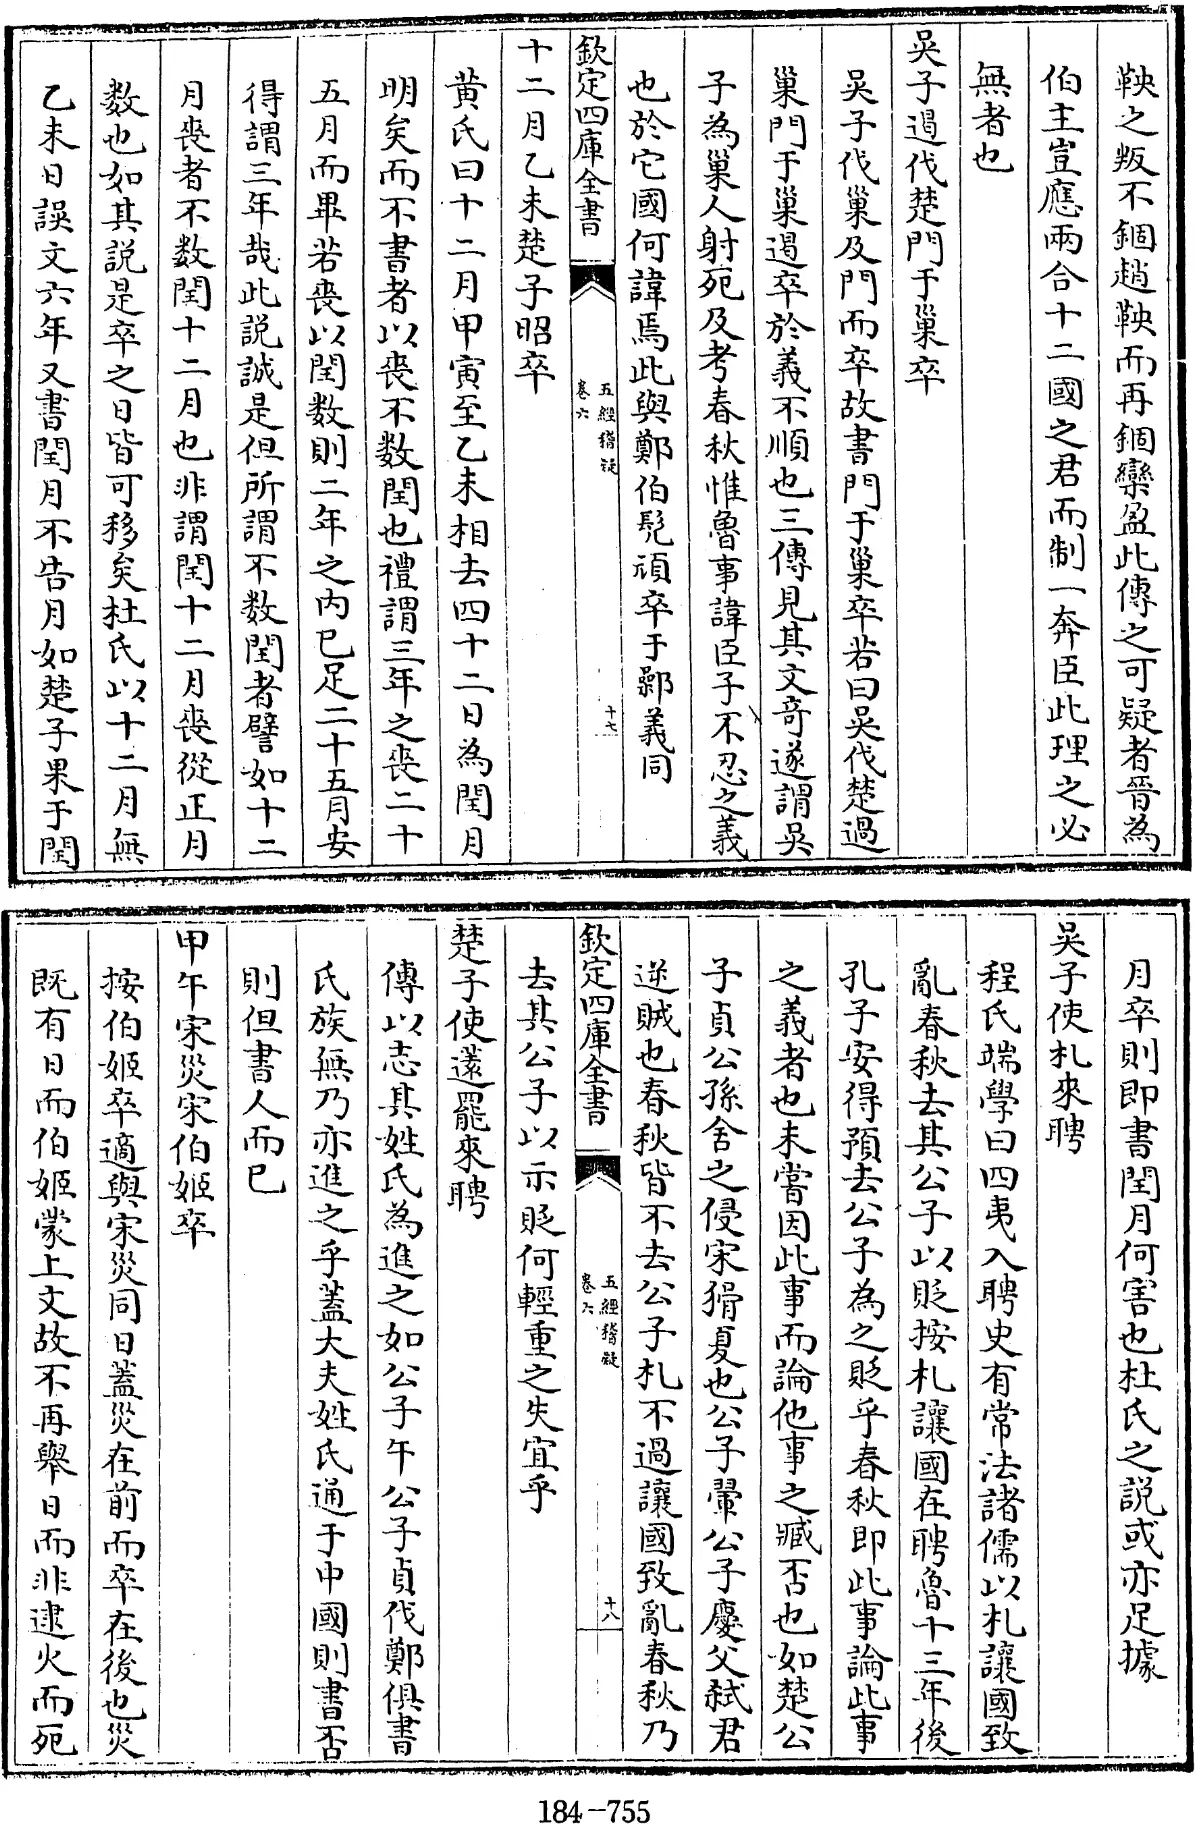 鞅之叛不錮趙鞅而再錮欒盈此傳之可疑者晉為
伯主豈應兩合十二國之君而制一奔臣此理之必
無者也
吳子遏伐楚門于巢卒
吳子伐巢及門而卒故書門于巢卒若曰吳伐楚過
巢門于巢遏卒於義不順也三傳見其文奇遂謂吳
子為巢人射死及考春秋惟魯事諱臣子不忍之義
也於它國何諱焉此與鄭伯髡頑卒于鄵義同
欽定四庫全書
五經稽疑
卷六
十七
十二月乙未楚子昭卒
黄氏曰十二月甲寅至乙未相去四十二日為閏月
明矣而不書者以喪不数閏也禮謂三年之喪二十
五月而畢若喪以閏数則二年之内已足二十五月安
得謂三年哉此説誠是但所謂不数閏者譬如十二
月喪者不数閏十二月也非謂閏十二月喪從正月
数也如其説是卒之日皆可移矣杜氏以十二月無
乙未日誤文六年又書閏月不告月如楚子果于閏
月卒則即書閏月何害也杜氏之説或亦足據
吳子使札來聘
程氏端學曰四夷入聘史有常法諸儒以札讓國致
亂春秋去其公子以貶按札讓國在聘魯十三年後
孔子安得預去公子為之貶乎春秋即此事論此事
之義者也未嘗因此事而論他事之臧否也如楚公
子貞公孫舍之侵宋猾夏也公子翬公子慶父弒君
逆賊也春秋皆不去公子札不過讓國致亂春秋乃
欽定四庫全書
五經稽疑
卷六
十八
去其公子以示貶何輕重之失宜乎
楚子使薳罷來聘
傳以志其姓氏為進之如公子午公子貞伐鄭俱書
氏族無乃亦進之乎蓋大夫姓氏通于中國則書否
則但書人而已
甲午宋災宋伯姬卒
按伯姬卒適與宋災同日蓋災在前而卒在後也災
既有日而伯姬蒙上文故不再舉日而非逮火而死
184-755